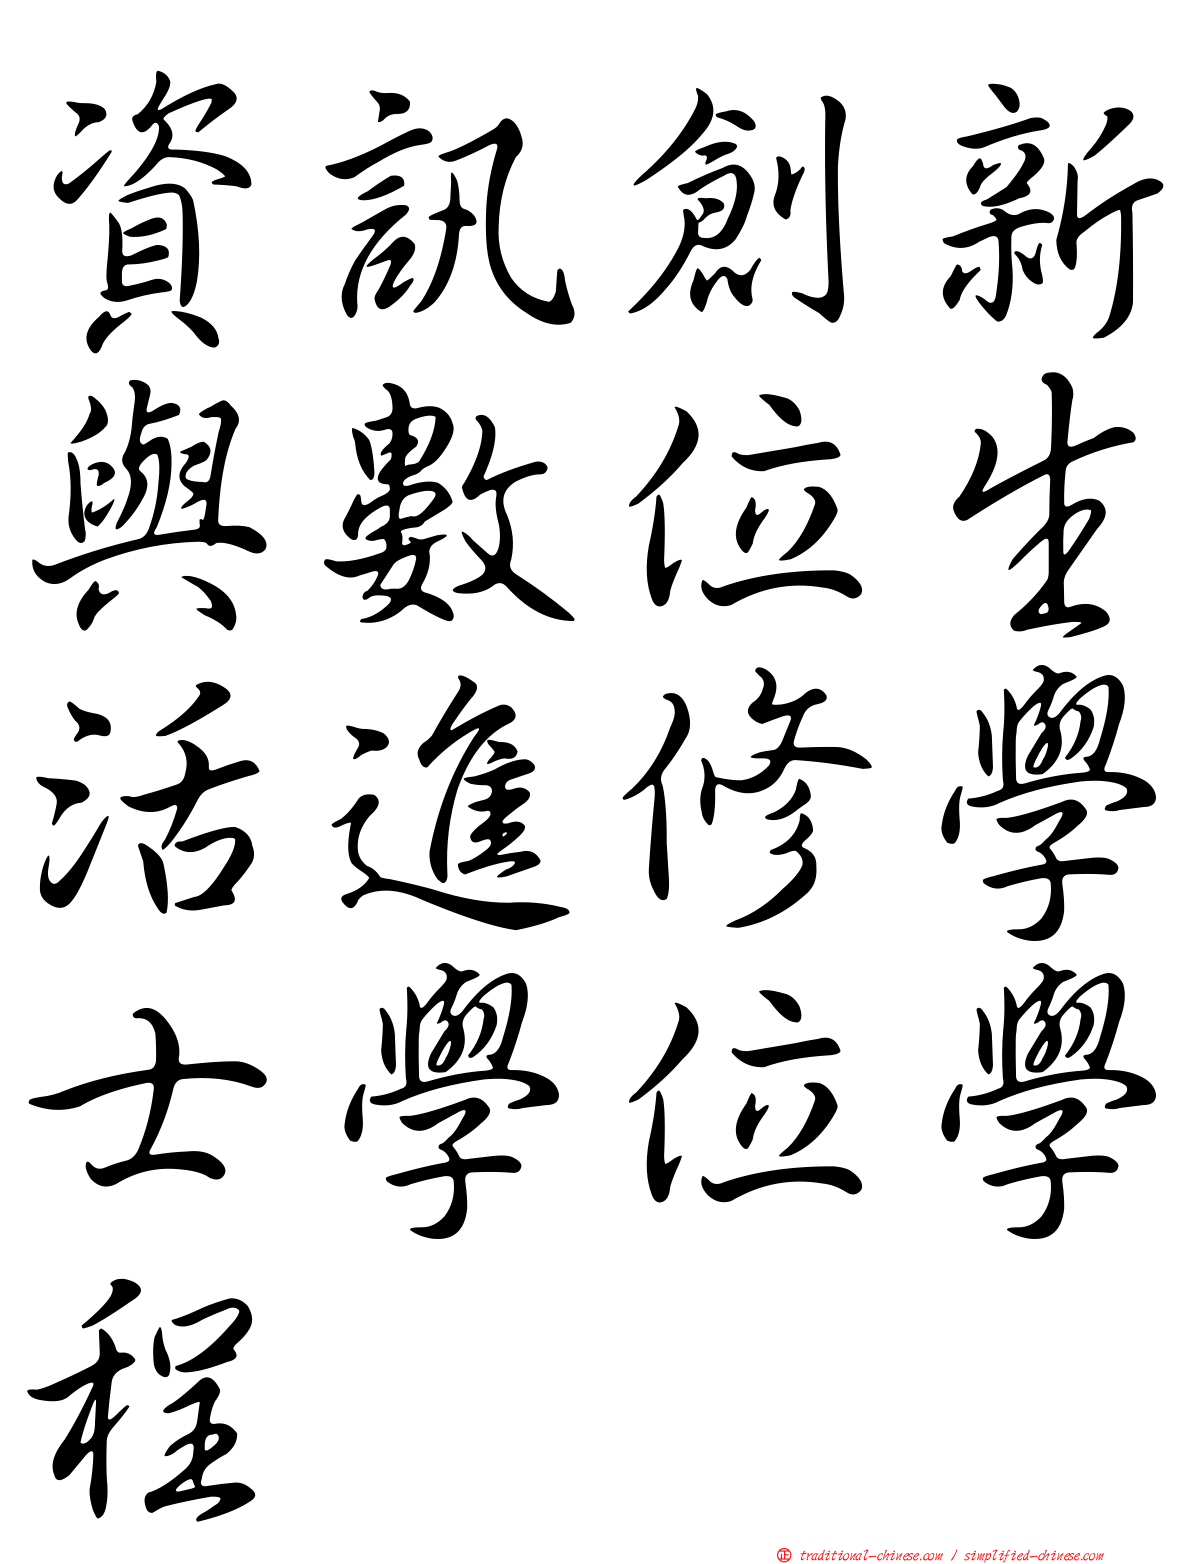 資訊創新
與數位生
活進修學
士學位學
程
正 traditional-chinese.com / simplified-chinese.com